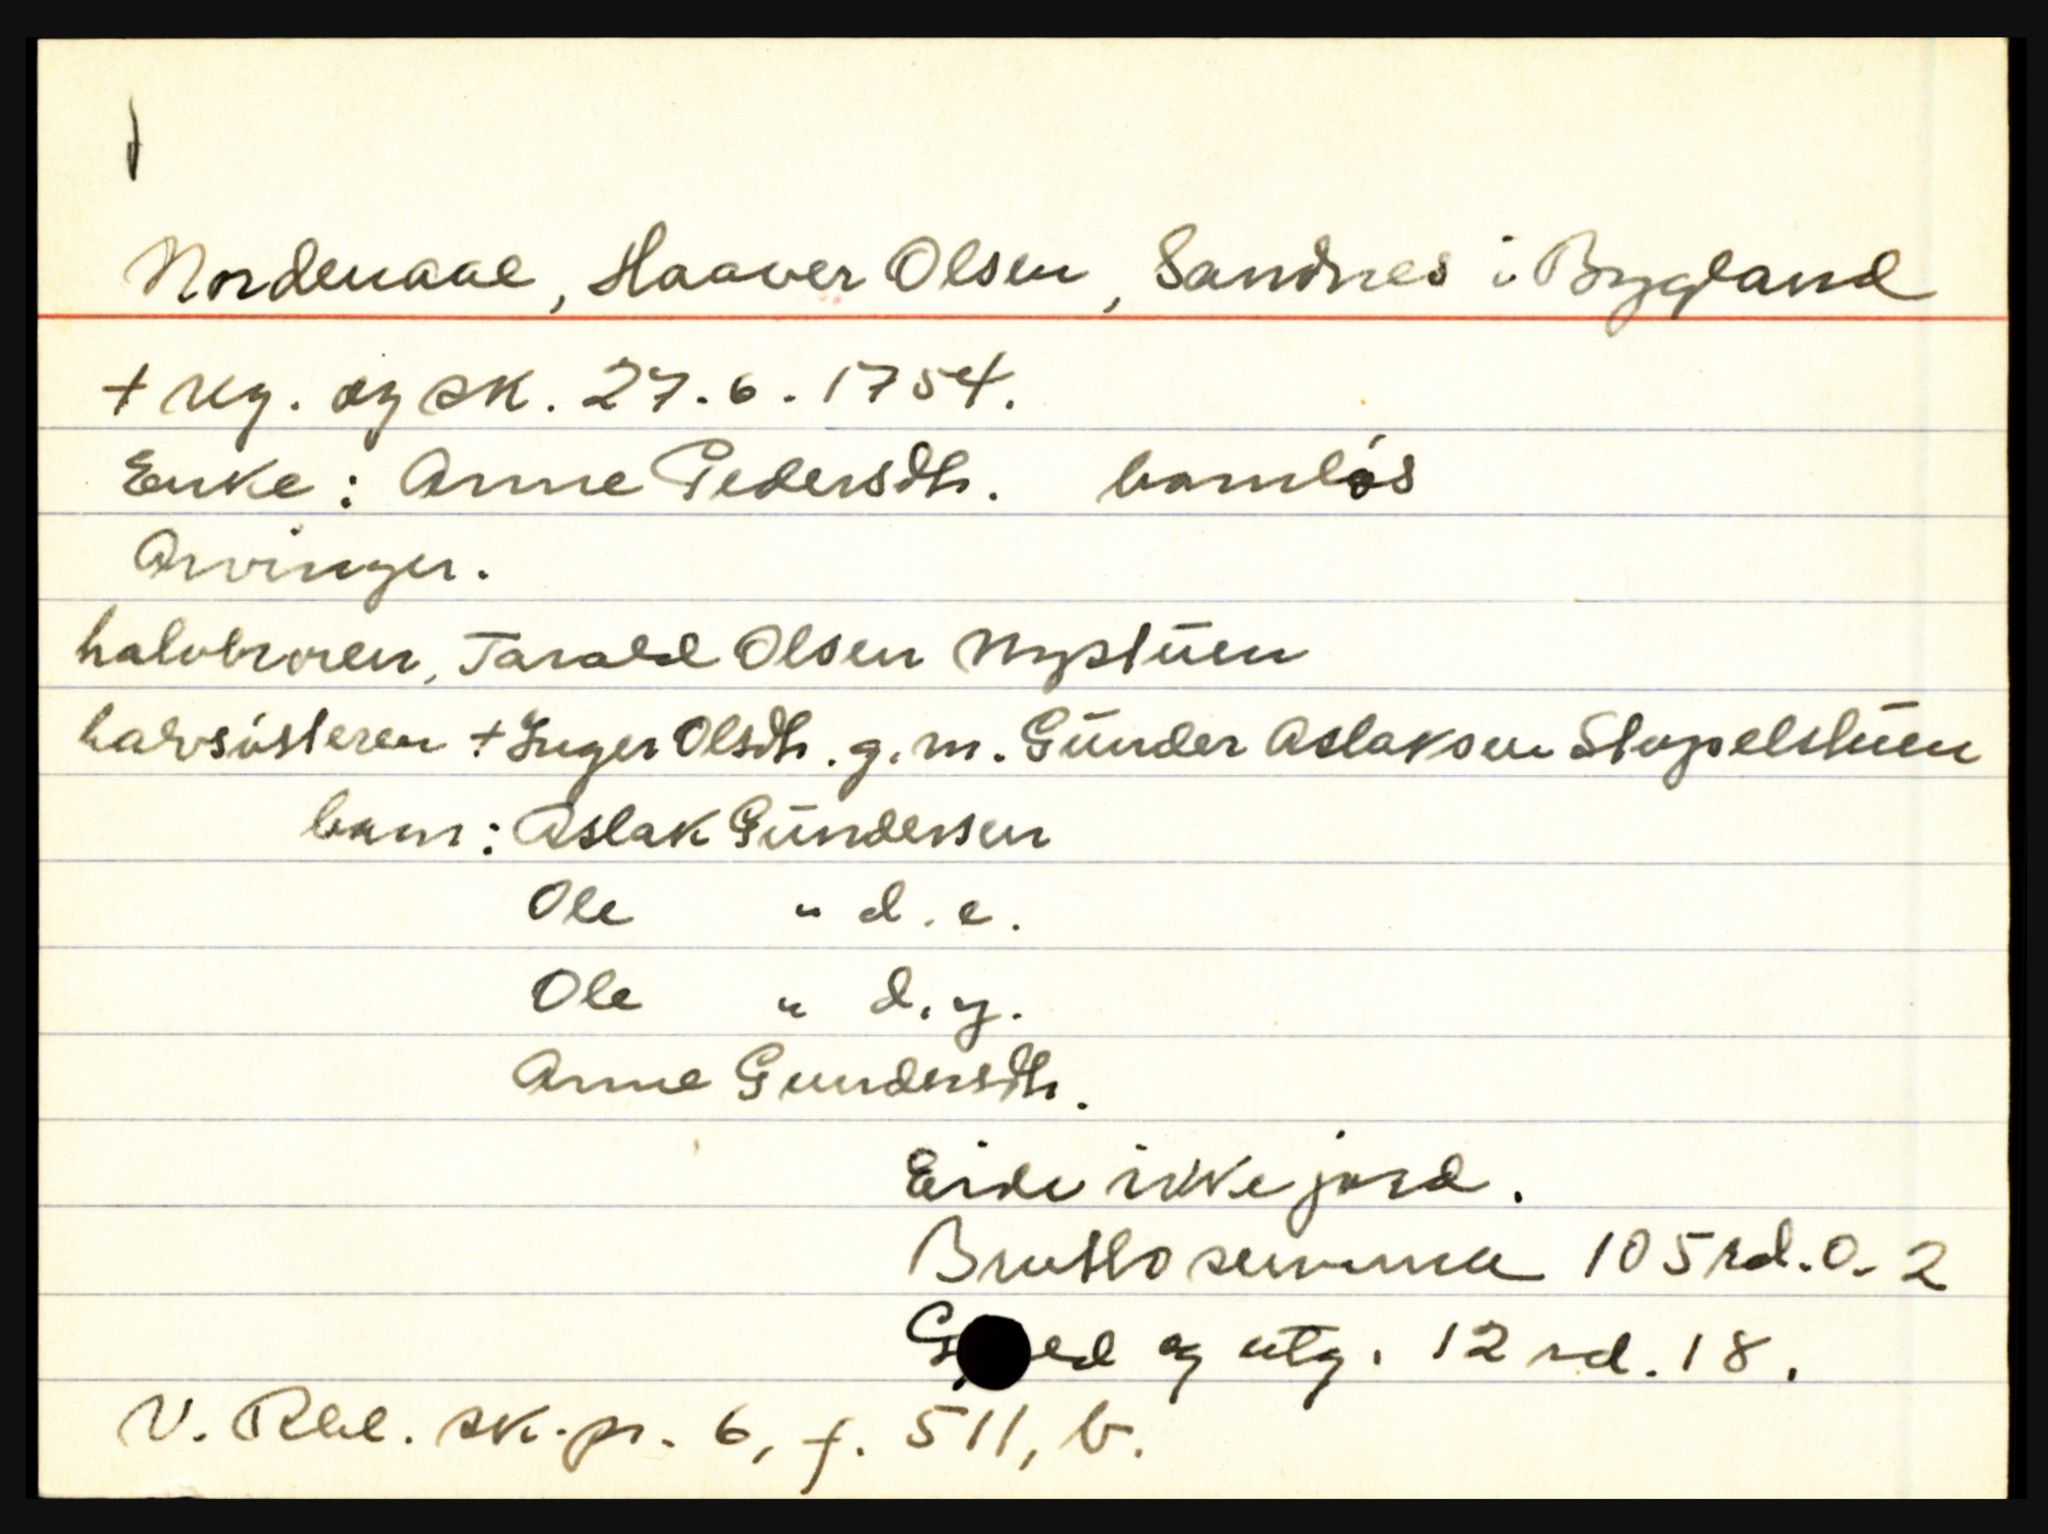 Nordenaae, Haaver Olsen, Sandnes i Bygland
+ reg. og sk. 27.6.1754.
Enke: Anne Pedersdtr. barnløs
Arvinger.
halvbroren, Tarald Olsen Nystuen
halvsösteren + Inger Olsdtr. g.m. Gunder Aslaksen Stapelstuen
barn: Aslak Gundersen
Ole " d.e.
Ole " d.y.
Anne Gundersdtr.
Eide ikke jord.
Brutto summa 105 rd. 0. 2
og utg. 12 rd. 18.
V. Rbl. sk.pr. 6, f. 511, b.